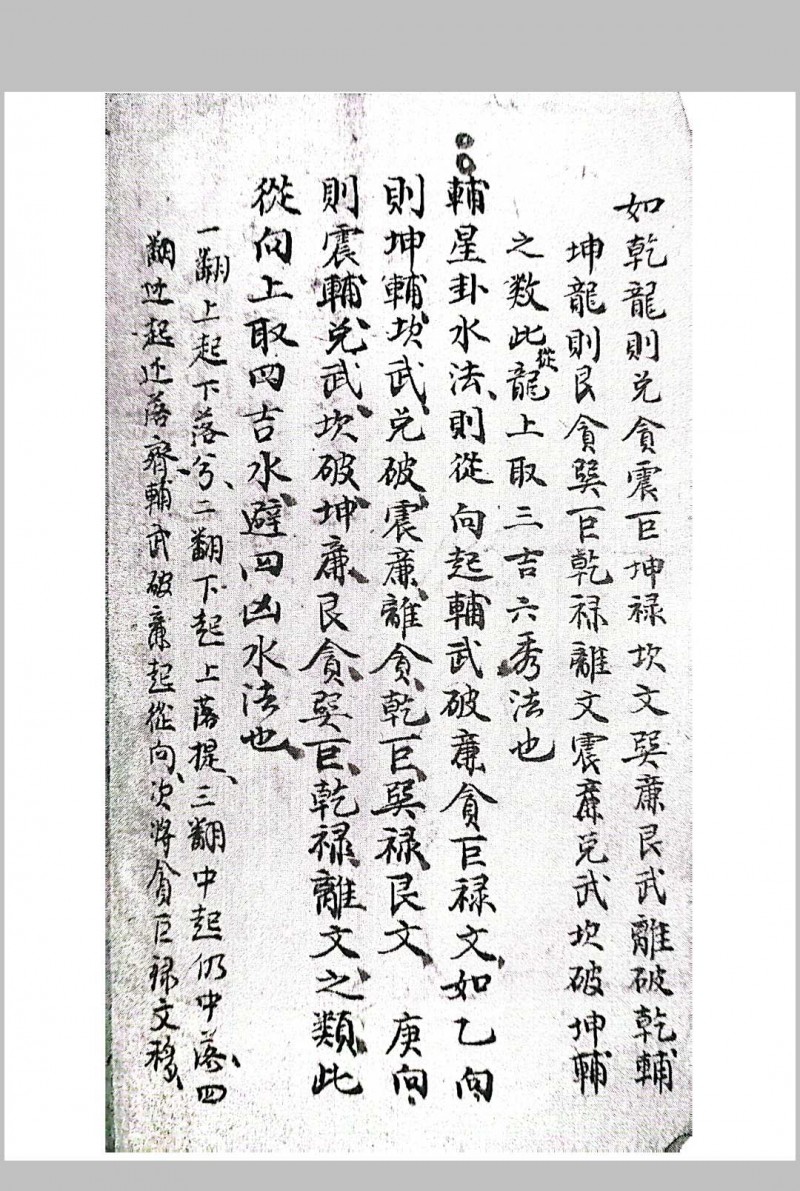 如乾龍則兌貪震巨坤禄坎文巽廉艮武離破乾輔
坤龍則艮貪巽巨乾禄離文震廉兌武坎破坤輔
之数此從龍上取三吉六秀法也
輔星卦水法則從向起輔武破廉貪巨禄文如乙向
則坤輔坎武兌破震廉離貪乾巨巽禄艮文 庚向
則震輔兌武坎破坤廉艮貪巽巨乾禄離文之類此
從向上取四吉水避四凶水法也
一翻上起下落兮二翻下起上落提三翻中起仍中落四
翻边起还落齊輔武破廉起從向次将貪巨禄文移